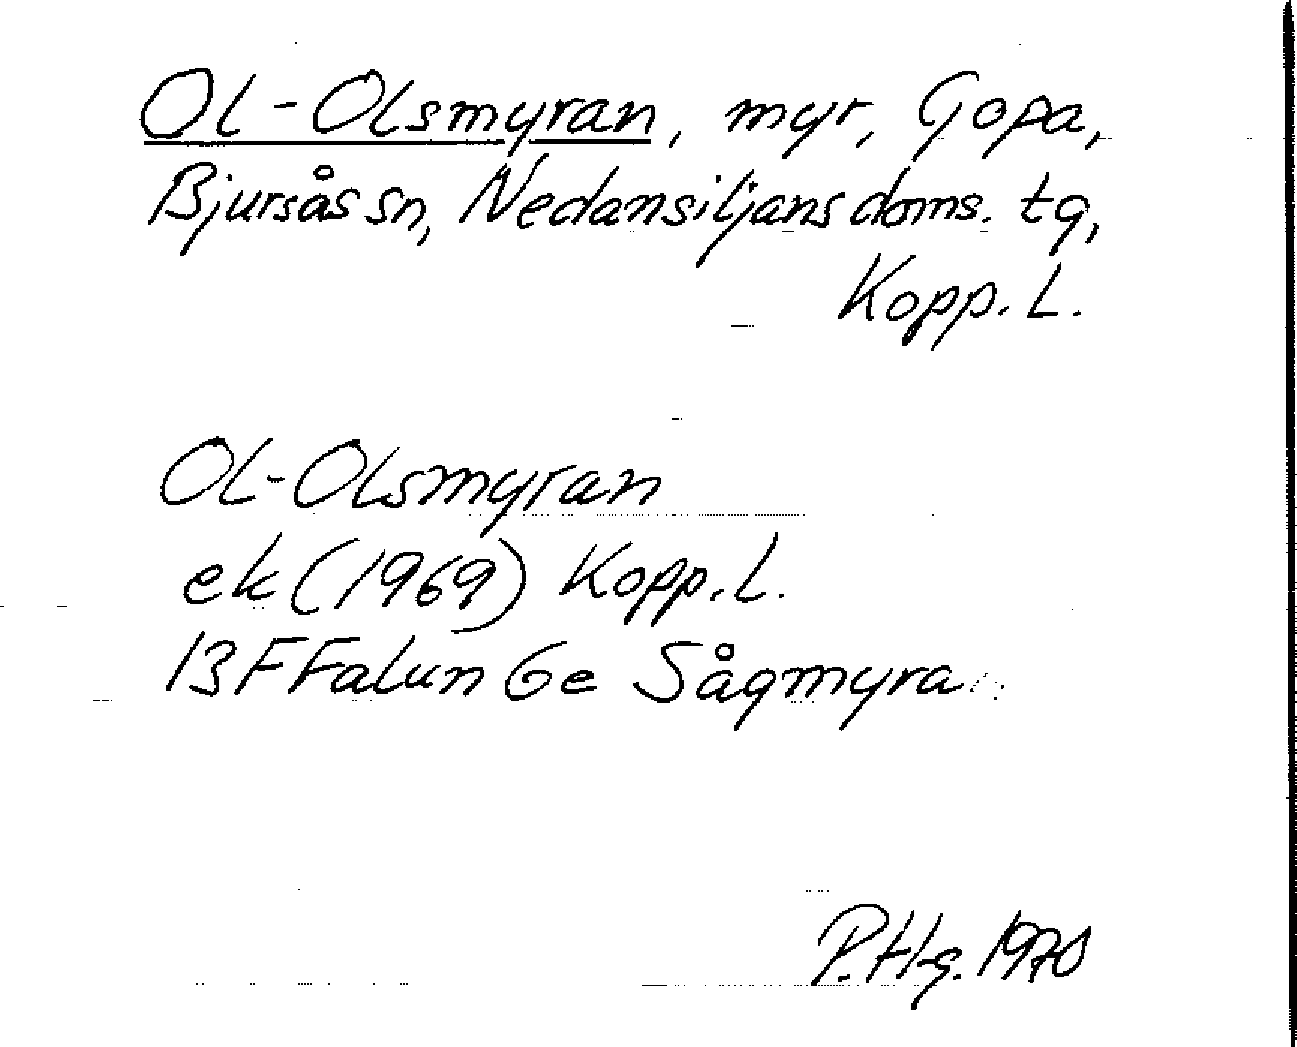 Ol-Olsmyran, myr, Gopa,
Bjursås sn, Nedansiljans doms. tg,
Kopp. L.
Ol-Olsmyran
ek (1969) Kopp. L.
13F Falun 6e Sågmyra
P. Hg. 1970